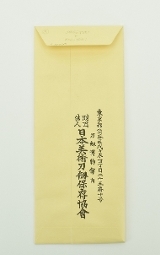 東京都渋谷区代々木四丁目二十五番十号
刀剣博物館内
財団
法人
日本美術刀剣保存協會